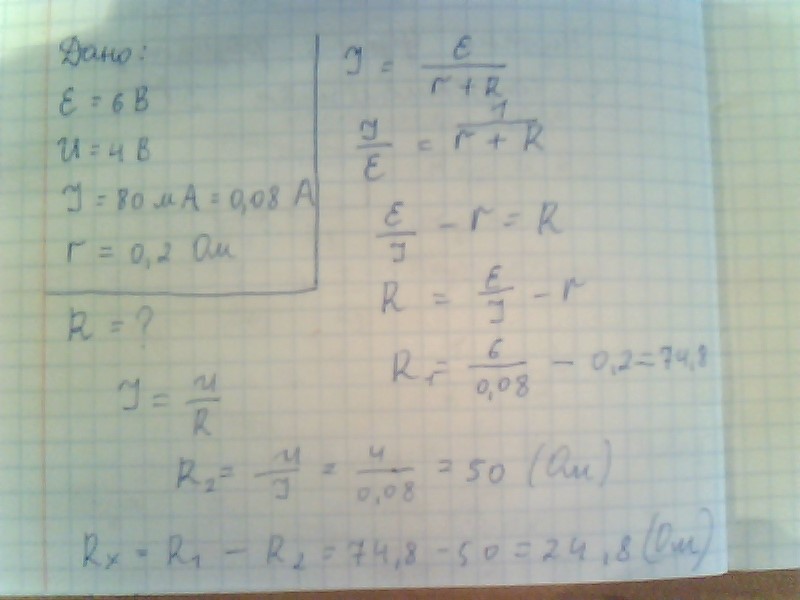 Дано:
ε = 6 В
U = 4 В
I = 80 мА = 0,08 А
r = 0,2 Ом
R = ?
I = U/R
I = ε/(r + R)
I/ε = 1/(r + R)
ε/I - r = R
R = ε/I - r
R₁ = 6/0,08 - 0,2 = 74,8
R₂ = U/I = 4/0,08 = 50 (Ом)
Rx = R₁ - R₂ = 74,8 - 50 = 24,8 (Ом)